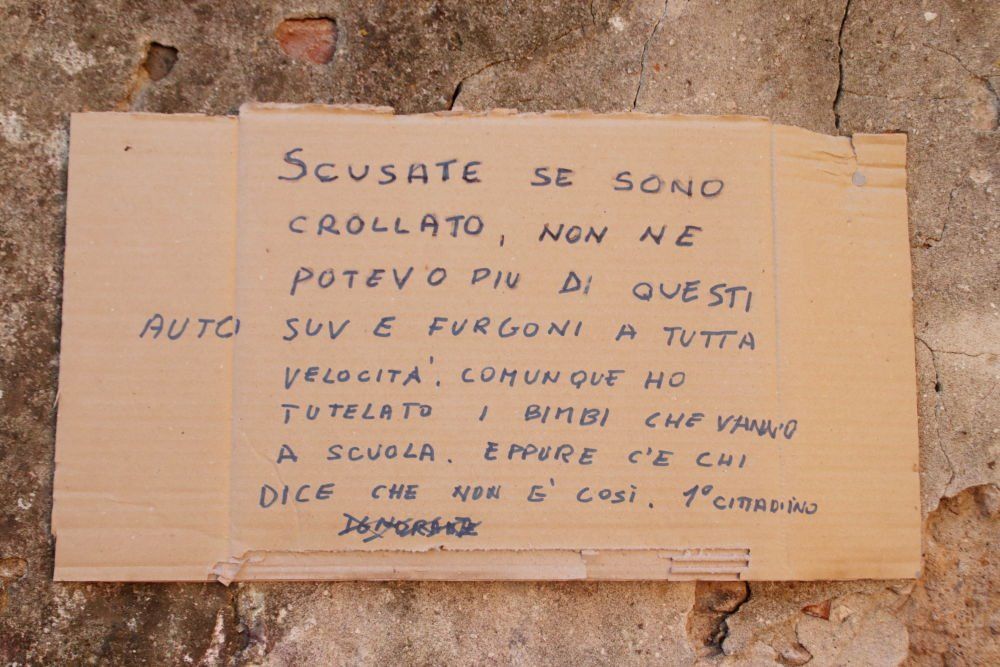 SCUSATE SE SONO
CROLLATO, NON NE
POTEVO PIU DI QUESTI
AUTO SUV E FURGONI A TUTTA
VELOCITÀ. COMUNQUE HO
TUTELATO I BIMBI CHE VANNO
A SCUOLA. EPPURE C'E CHI
DICE CHE NON E' COSÌ. 1º CITTADIINO
IGNORANTE